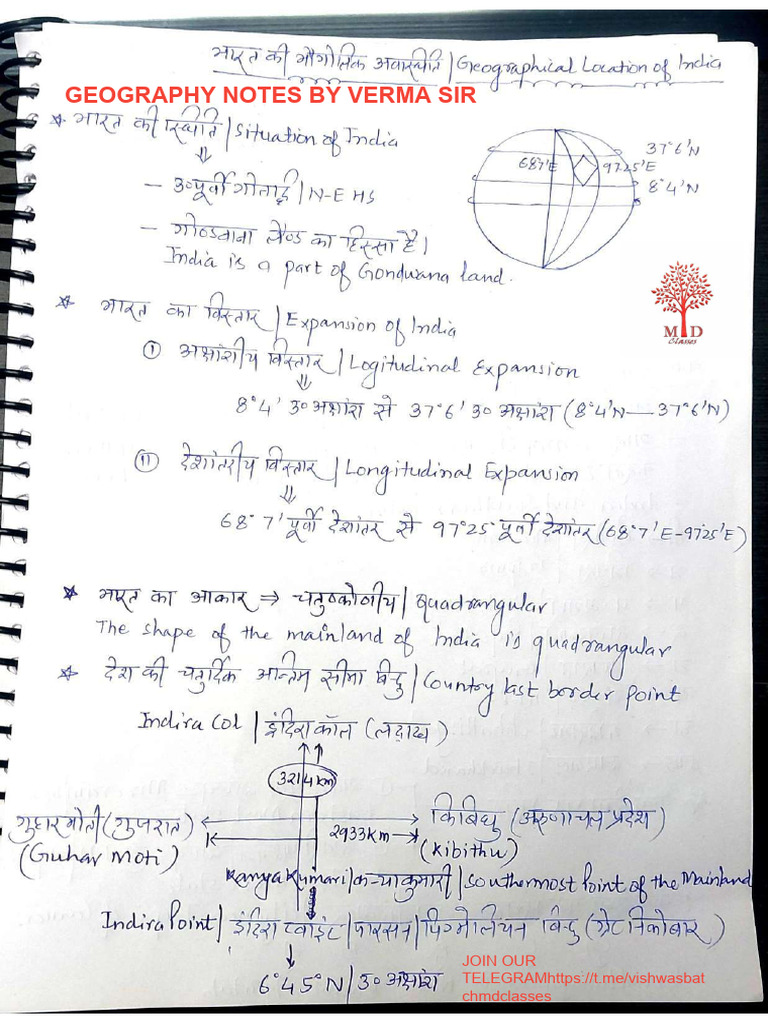 भारत की भौगोलिक अवस्थिति | Geographical Location of India
GEOGRAPHY NOTES BY VERMA SIR
* भारत की स्थिति | Situation of India
⇓
– उ०पूर्वी गोलार्द्ध | N-E HS
– गोण्डवाना लैण्ड का हिस्सा है।
India is a part of Gondwana land.
68°7'E
97°25'E
37°6'N
8°4'N
M D
Classes
* भारत का विस्तार | Expansion of India
① अक्षांशीय विस्तार | Logitudinal Expansion
⇓
8°4' उ० अक्षांश से 37°6' उ० अक्षांश (8°4'N — 37°6'N)
⑪ देशांतरीय विस्तार | Longitudinal Expansion
⇓
68°7' पूर्वी देशांतर से 97°25' पूर्वी देशांतर (68°7'E-97°25'E)
* भारत का आकार ⇒ चतुष्कोणीय | Quadrangular
The shape of the mainland of India is quadrangular
* देश की चतुर्दिक अन्तिम सीमा बिंदु | Country last border point
Indira Col | इंदिरा कॉल (लद्दाख)
3214km
गुहार मोती (गुजरात)
(Guhar Moti)
2933Km
किबिथु (अरुणाचल प्रदेश)
(Kibithu)
Kanyakumari | कन्याकुमारी | Southermost Point of the Mainland
Indira Point | इंदिरा प्वाइंट | पारसन | पिग्मेलियन बिन्दु (ग्रेट निकोबार)
6°45°N | उ० अक्षांश
JOIN OUR
TELEGRAMhttps://t.me/vishwasbat
chmdclasses